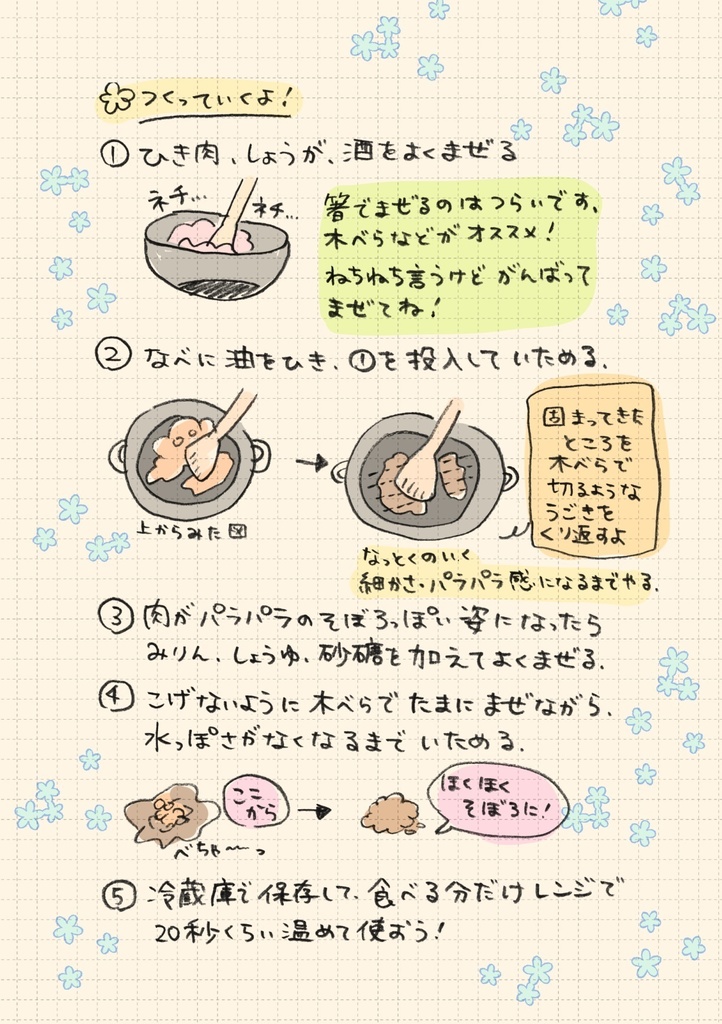 つくっていくよ!
① ひき肉、しょうが、酒をよくまぜる
ネチ…
ネチ…
箸でまぜるのはつらいです、
木べらなどがオススメ!
ねちねち言うけどがんばって
まぜてね!
② なべに油をひき、①を投入していためる。
上からみた図
固まってきた
ところを
木べらで
切るような
うごきを
くり返すよ
なっとくのいく
細かさ、パラパラ感になるまでやる。
③ 肉がパラパラのそぼろっぽい姿になったら
みりん、しょうゆ、砂糖を加えてよくまぜる。
④ こげないように木べらでたまにまぜながら、
水っぽさがなくなるまでいためる。
ここ
から
べちゃ〜っ
ほくほく
そぼろに!
⑤ 冷蔵庫で保存して、食べる分だけレンジで
20秒くらい温めて使おう!